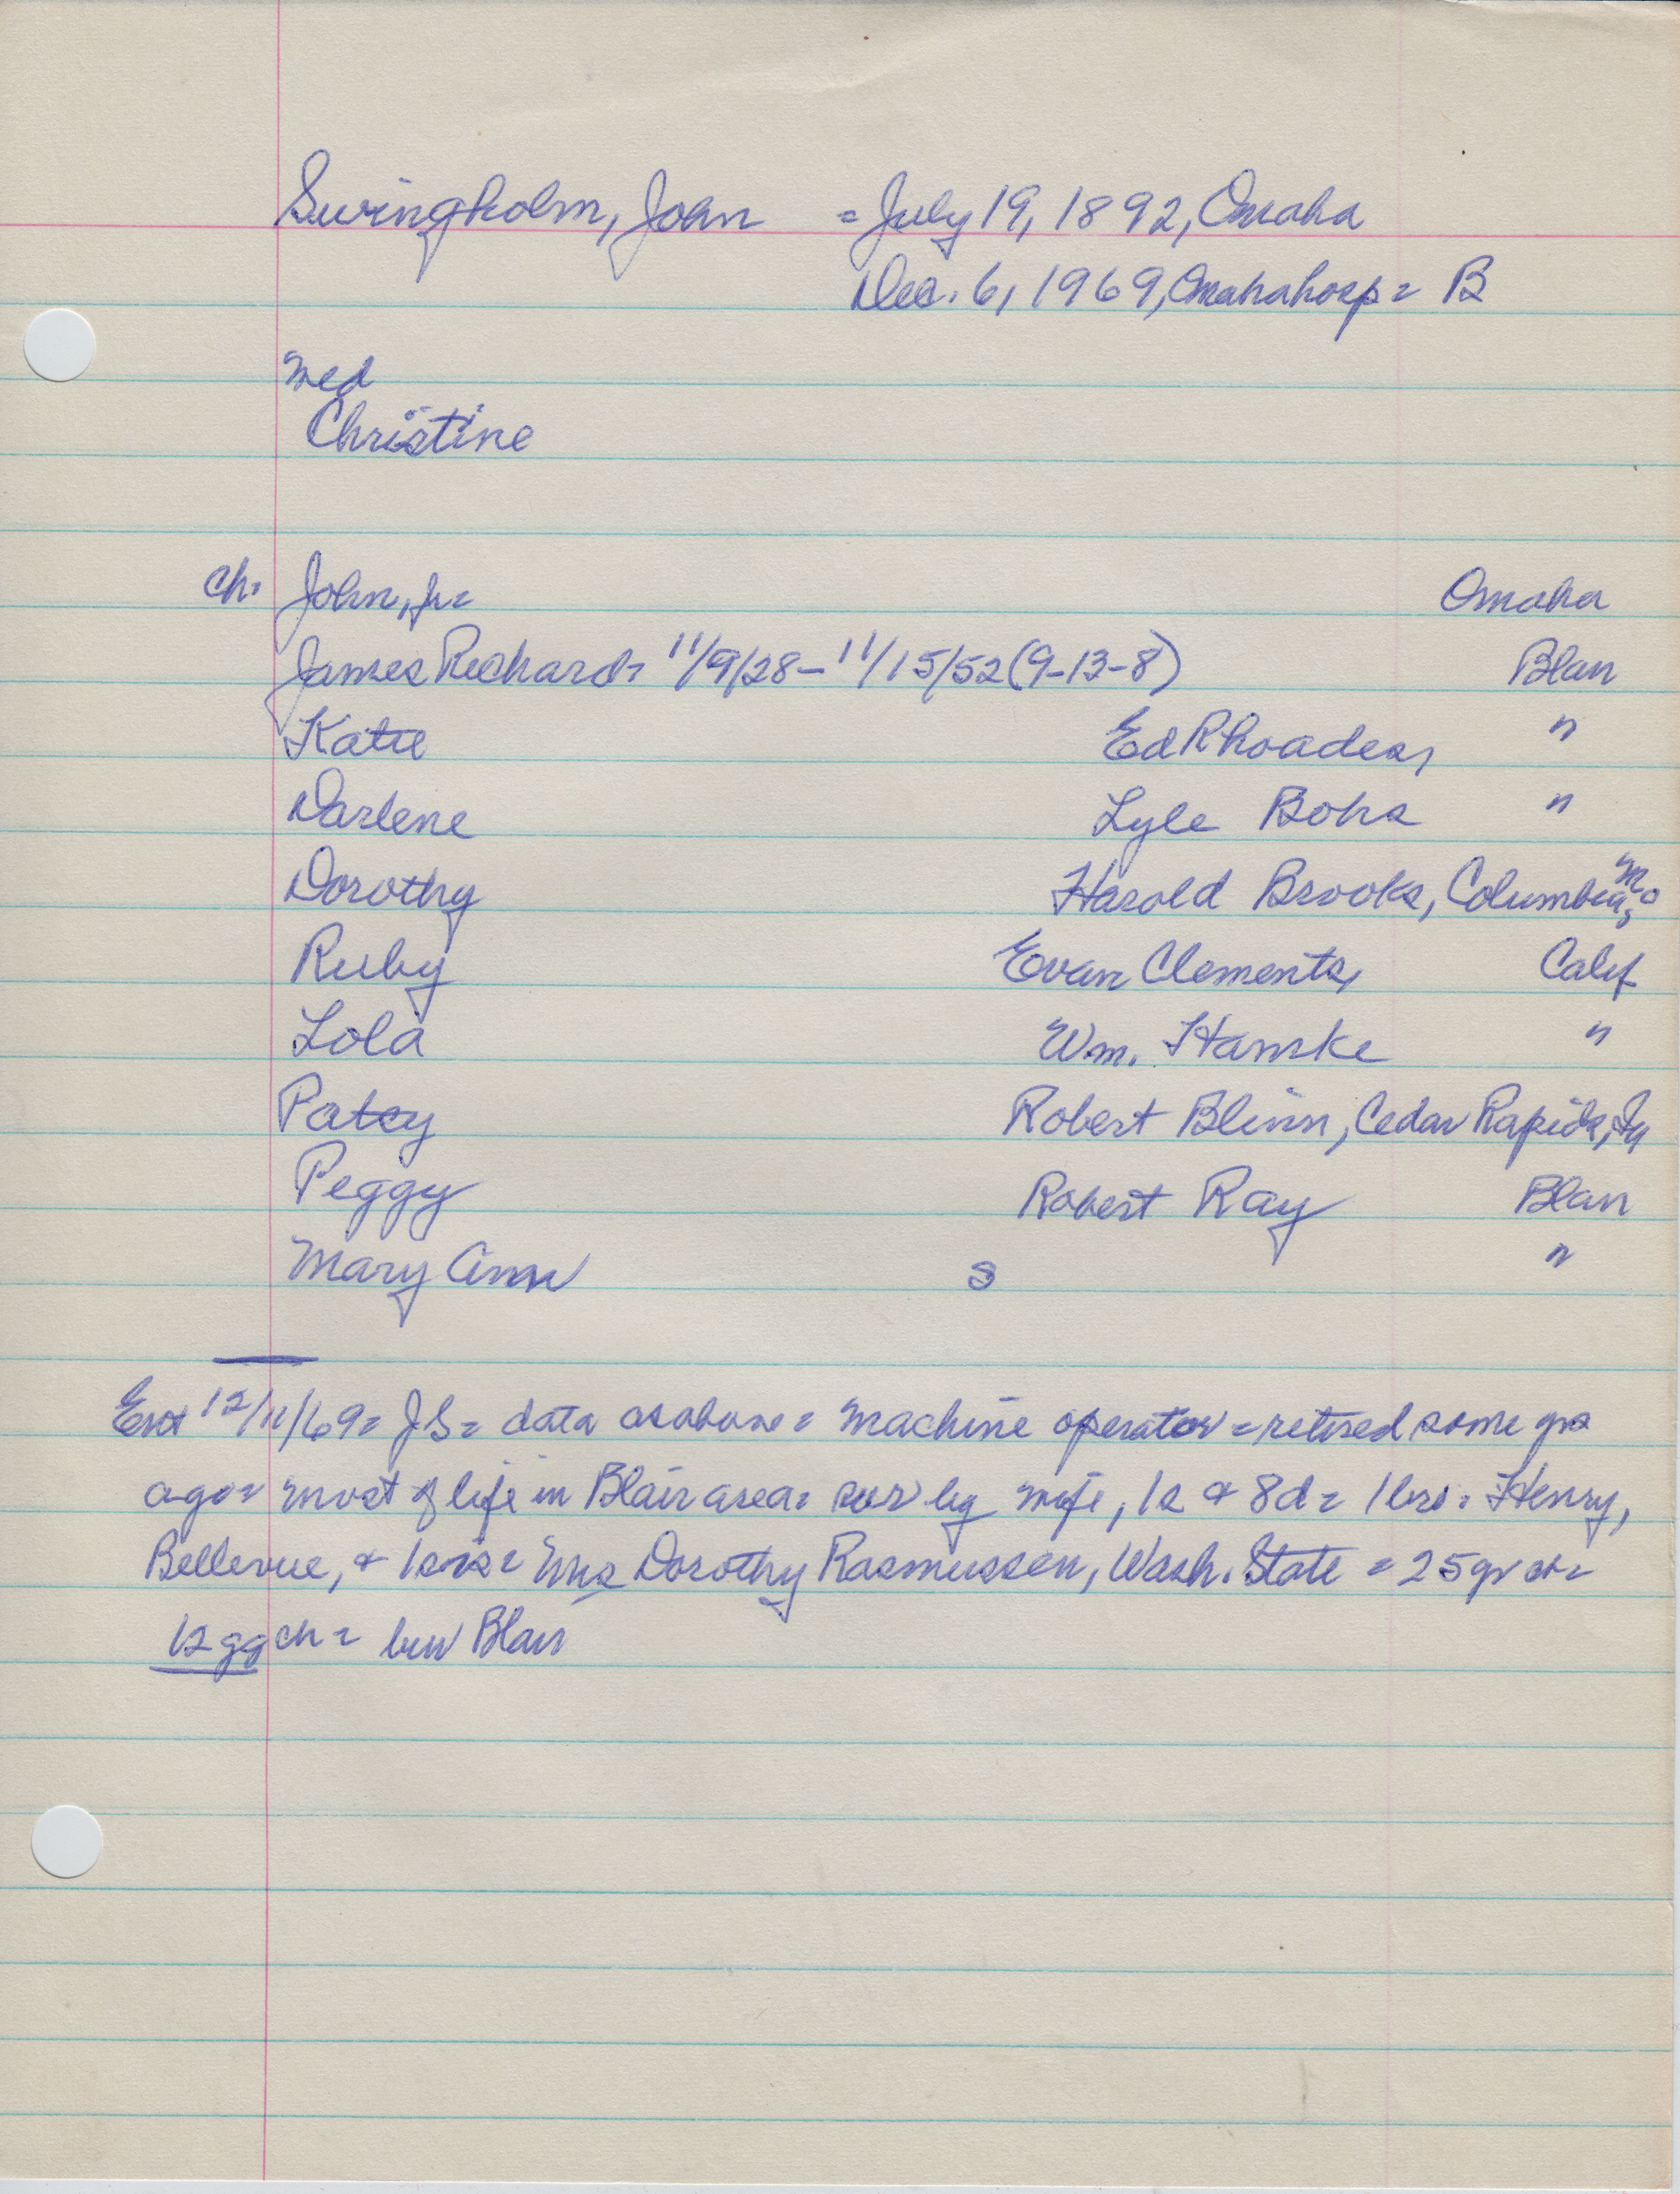 Swingholm, John = July 19, 1892, Omaha
Dec. 6, 1969, Omaha hosp = B
med
Christine
ch: John, Jr = Omaha
James Richard = 11/9/28 – 11/15/52 (9-13-8) Blair
Katie Ed Rhoades, "
Darlene Lyle Bohs "
Dorothy Harold Brooks, Columbia, Mo
Ruby Evan Clements, Calif
Lola Wm. Hamke "
Patsy Robert Blinn, Cedar Rapids, Ia
Peggy Robert Ray Blair
Mary Ann s "
Ent 12/11/69 = JS = data as above = machine operator = retired some yrs
ago = most of life in Blair area = sur by wife, 1s & 8d = 1 bro: Henry,
Bellevue, & 1 sis = Mrs Dorothy Rasmussen, Wash. State = 25 gr ch =
12 gg ch = bur Blair